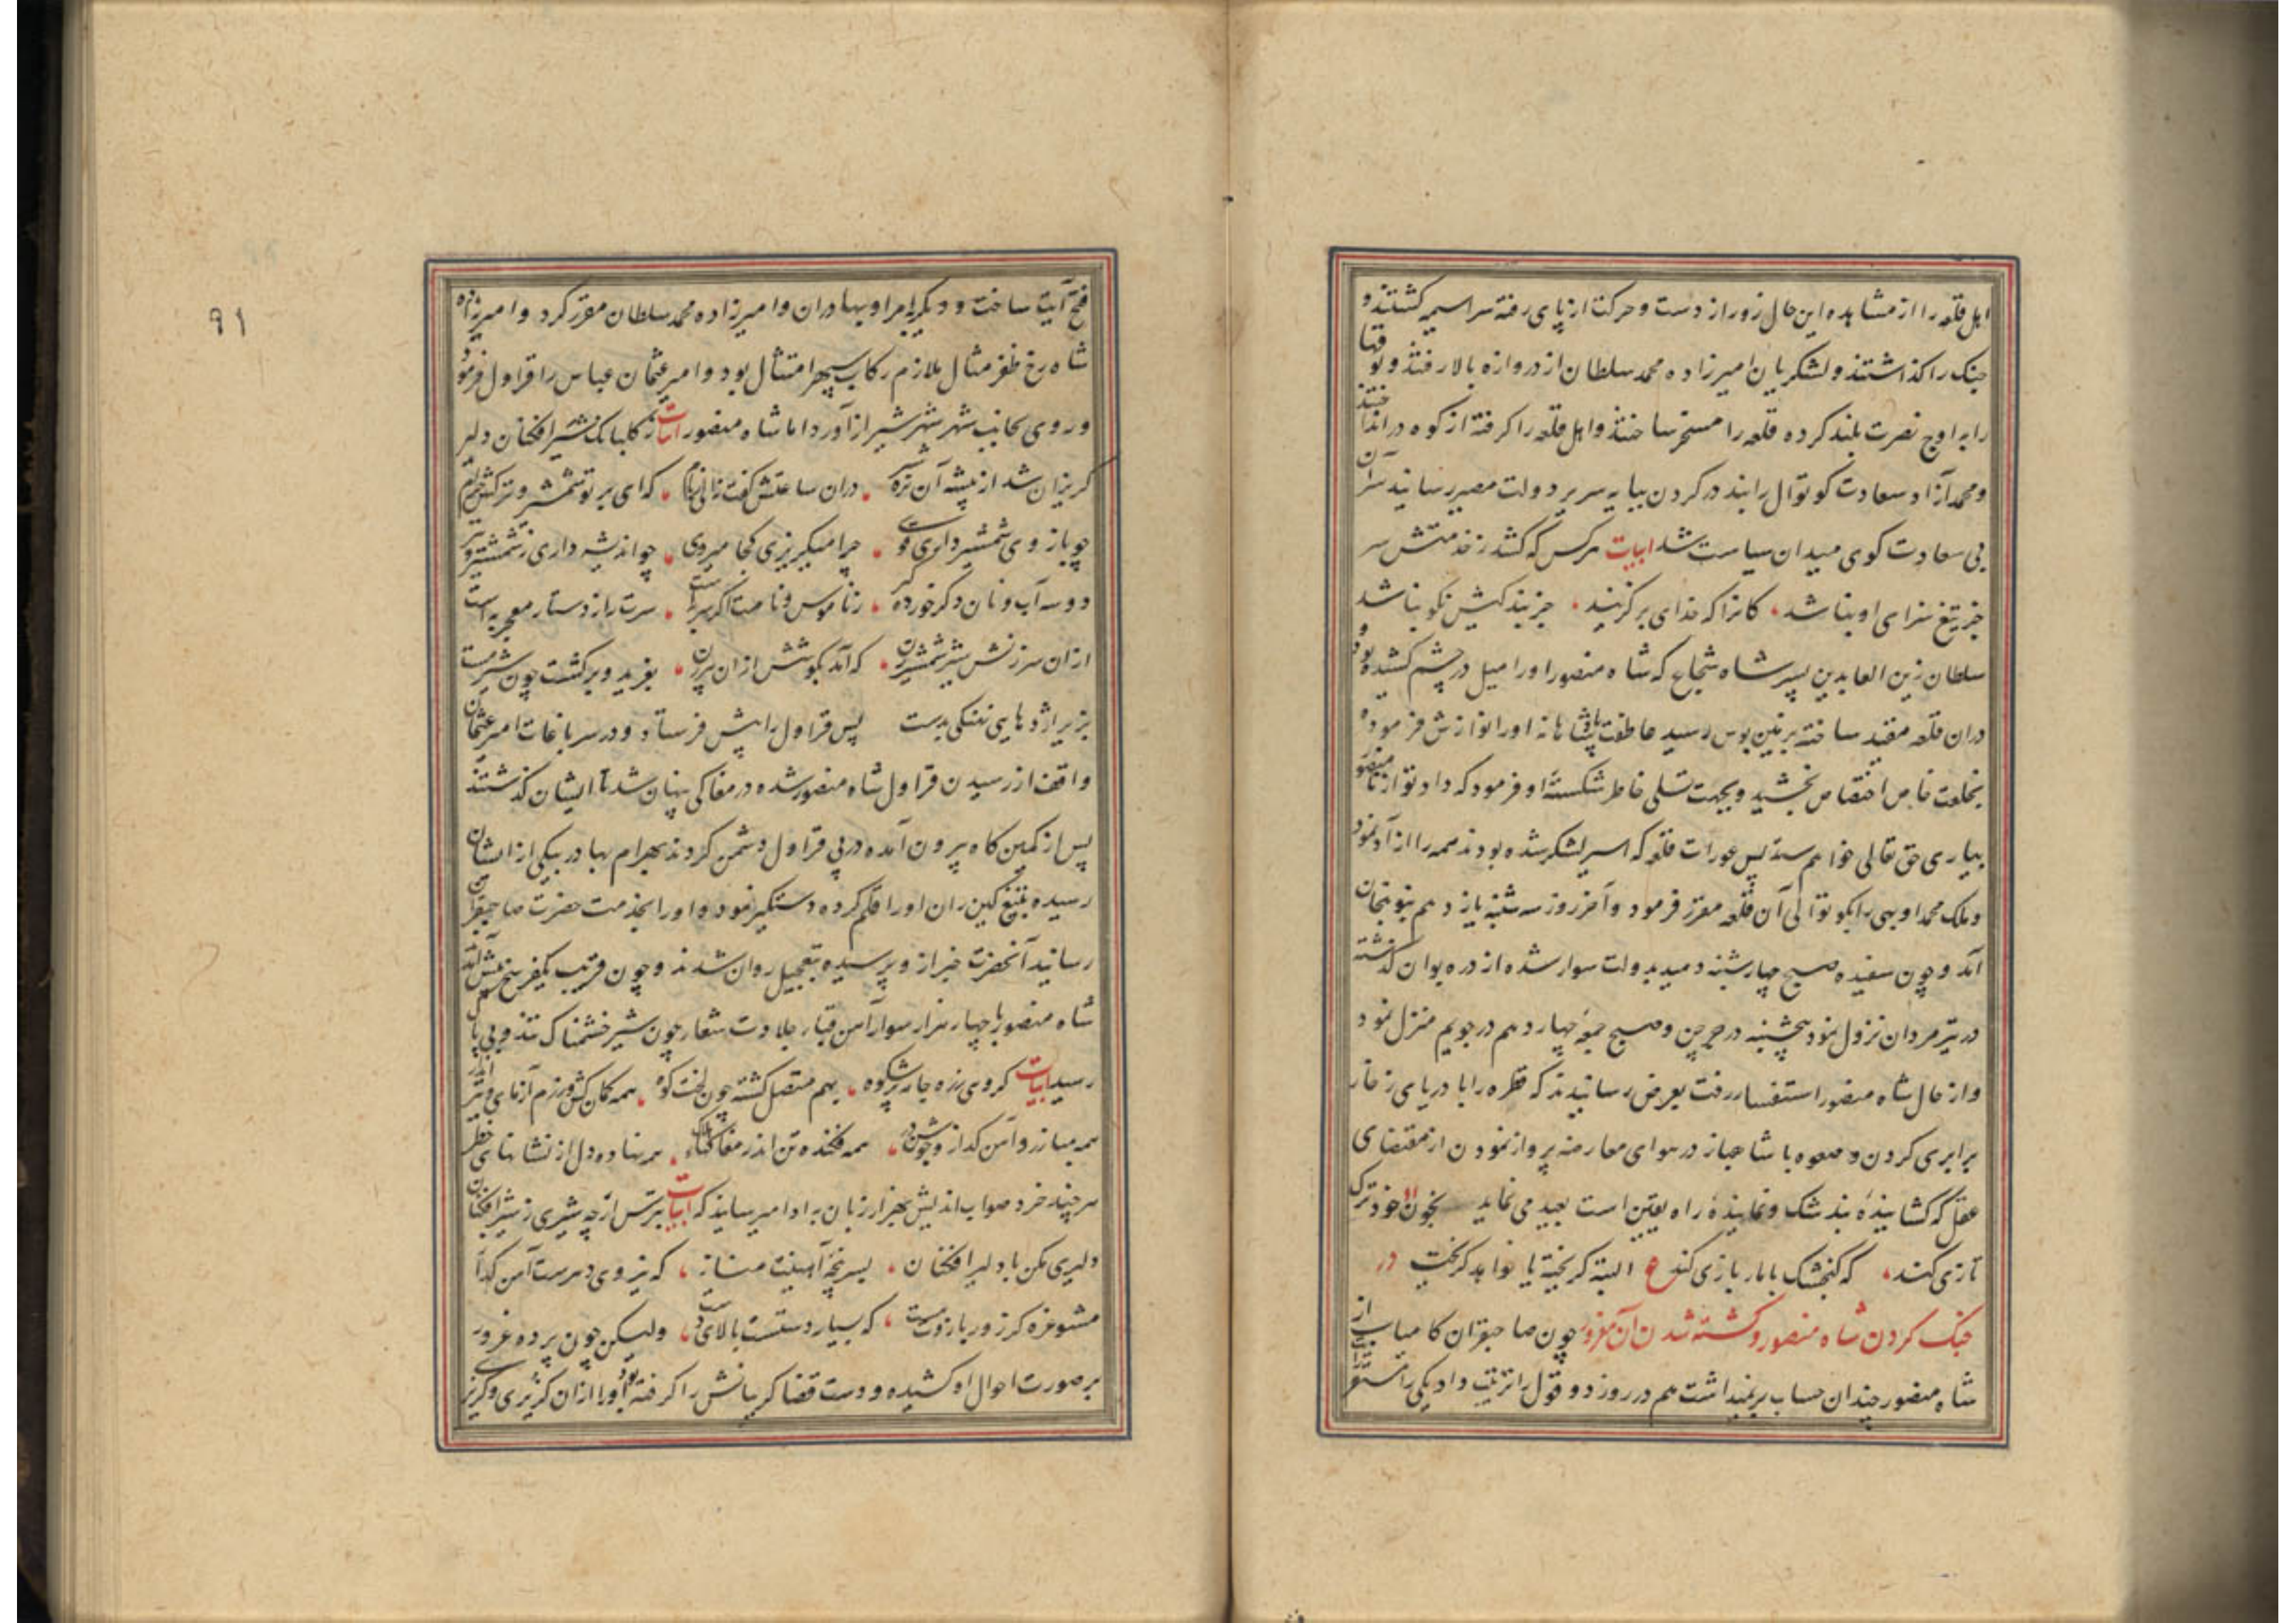 اهل قلعه را از مشاهده این حال زور از دست و حرکت از پای رفته سراسیمه گشتند و
جنک را کذاشتند و لشکریان امیرزاده محمد سلطان از دروازه بالا رفتند و توقها
را به اوج نصرت بلند کرده قلعه را مسخر ساختند و اهل قلعه را کرفته از کوه در انداختند
و محمد آزاد سعادت کوتوال را بند در کردن بپایه سریر دولت مصیر رسانید سر آن
بی سعادت کوی میدان سیاست شد ابیات هرکس که کشد ز خدمتش سر
جز تیغ سزای او نباشد کانرا که خدای برکزیند جز بندکیش نکو نباشد
سلطان زین العابدین پسر شاه شجاع که شاه منصور او را میل در چشم کشیده بود و
دران قلعه مقید ساخته بزمین بوس رسید عاطفت پادشاهانه او را نوازش فرموده
بخلعت خاص اختصاص بخشید و بجهت تسلی خاطر شکسته او فرمود که داد تو از شاه منصور
بیاری حق تعالی خواهم ستد پس عورات قلعه که اسیر لشکر شده بودند همه را آزاد نمود
و ملک محمد اوبهی را بکوتوالی آن قلعه مقرر فرمود و آخر روز سه شنبه یازدهم بنوبنجان
آمد و چون سفیده صبح چهارشنبه دمید بدولت سوار شده از دره بوان کذشته
در تیرمردان نزول نمود پنجشنبه در جرجین و صبح جمعه چهاردهم در جویم منزل نمود
و از حال شاه منصور استفسار رفت بعرض رسانیدند که قطره را با دریای زخار
برابری کردن و صعوه با شاهباز در هوای معارضه پرواز نمودن از مقتضای
عقل که کشاینده بند شک و نماینده راه یقین است بعید می نماید بخون خود ترک
تازی کند که کنجشک با باز بازی کند ع البته کریخته یا خواهد کریخت در
جنک کردن شاه منصور و کشته شدن آن مغرور چون صاحبقران کامیاب از
شاه منصور چندان حساب برنمیداشت هم در روز دو قول را ترتیب داد یکی را
فتح آیت ساخت و دیکری بامرا و بهادران و امیرزاده محمد سلطان مقرر کرد و امیرزاده
شاه رخ ظفر مثال ملازم رکاب سپهر امتثال بود و امیر عثمان عباس را قراول فرمود
و روی بجانب شهر شیراز آورد اما شاه منصور ابیات ز کلبانک شیر افکنان دلیر
کریزان شد از بیشه آن نره شیر دران ساعتش کفت زالی که ای بر تو شمشیر و ترکش حرام
چو بازوی شمشیر داری و تیر چرا میکریزی کجا میروی چو اندیشه داری ز شمشیر و تیر
دو سه آب و نان دکر خورده کیر ز ناموس و نامت اکر بهره است سرت را ز دستار معجر به است
ازان سرزنش شیر شمشیرزن که آمد بکوشش ازان پیرزن بغرید و برکشت چون شیر مست
بزیر اژدهایی نهنکی بدست پس قراول را پیش فرستاد و در سر باغات امیر عثمان
واقف از رسیدن قراول شاه منصور شده در مغاکی پنهان شد تا ایشان کذشتند
پس از کمین کاه بیرون آمده در پی قراول دشمن کردند بهرام بهادر بیکی از ایشان
رسیده بتیغ کین ران او را قلم کرده دستکیر نمود و او را بخدمت حضرت صاحبقران
رسانید آنحضرت خبر از وی پرسیده بتعجیل روان شدند و چون قریب یکفرسخ پیش آمد
شاه منصور با چهار هزار سوار آهن قبا جلادت شعار چون شیر خشمناک تند و بی باک
رسید ابیات کروهی زره جامه پرشکوه بهم متصل کشته چون لخت کوه همه کمان کش و رزم آزمای و تیر انداز
همه مبارز و آهن کداز و جوشن در همه فکنده تن اندر مغاک هلاک همه نهاده دل از نشانهای خطر
هرچند خرد صواب اندیش بهزار زبان به او امیرساند که ابیات بترس ارچه شیری ز شیر افکنان
دلیری مکن با دلیر افکنان بسر پنجه آهنیت مناز که نیروی دهرست آهن کداز
مشو غره کر زور بازوت هست که بسیار دستست بالای دست ولیکن چون پرده غرور
بر صورت احوال او کشیده و دست قضا کریبانش را کرفته بود او را ازان کزیری و کریز
۹۱